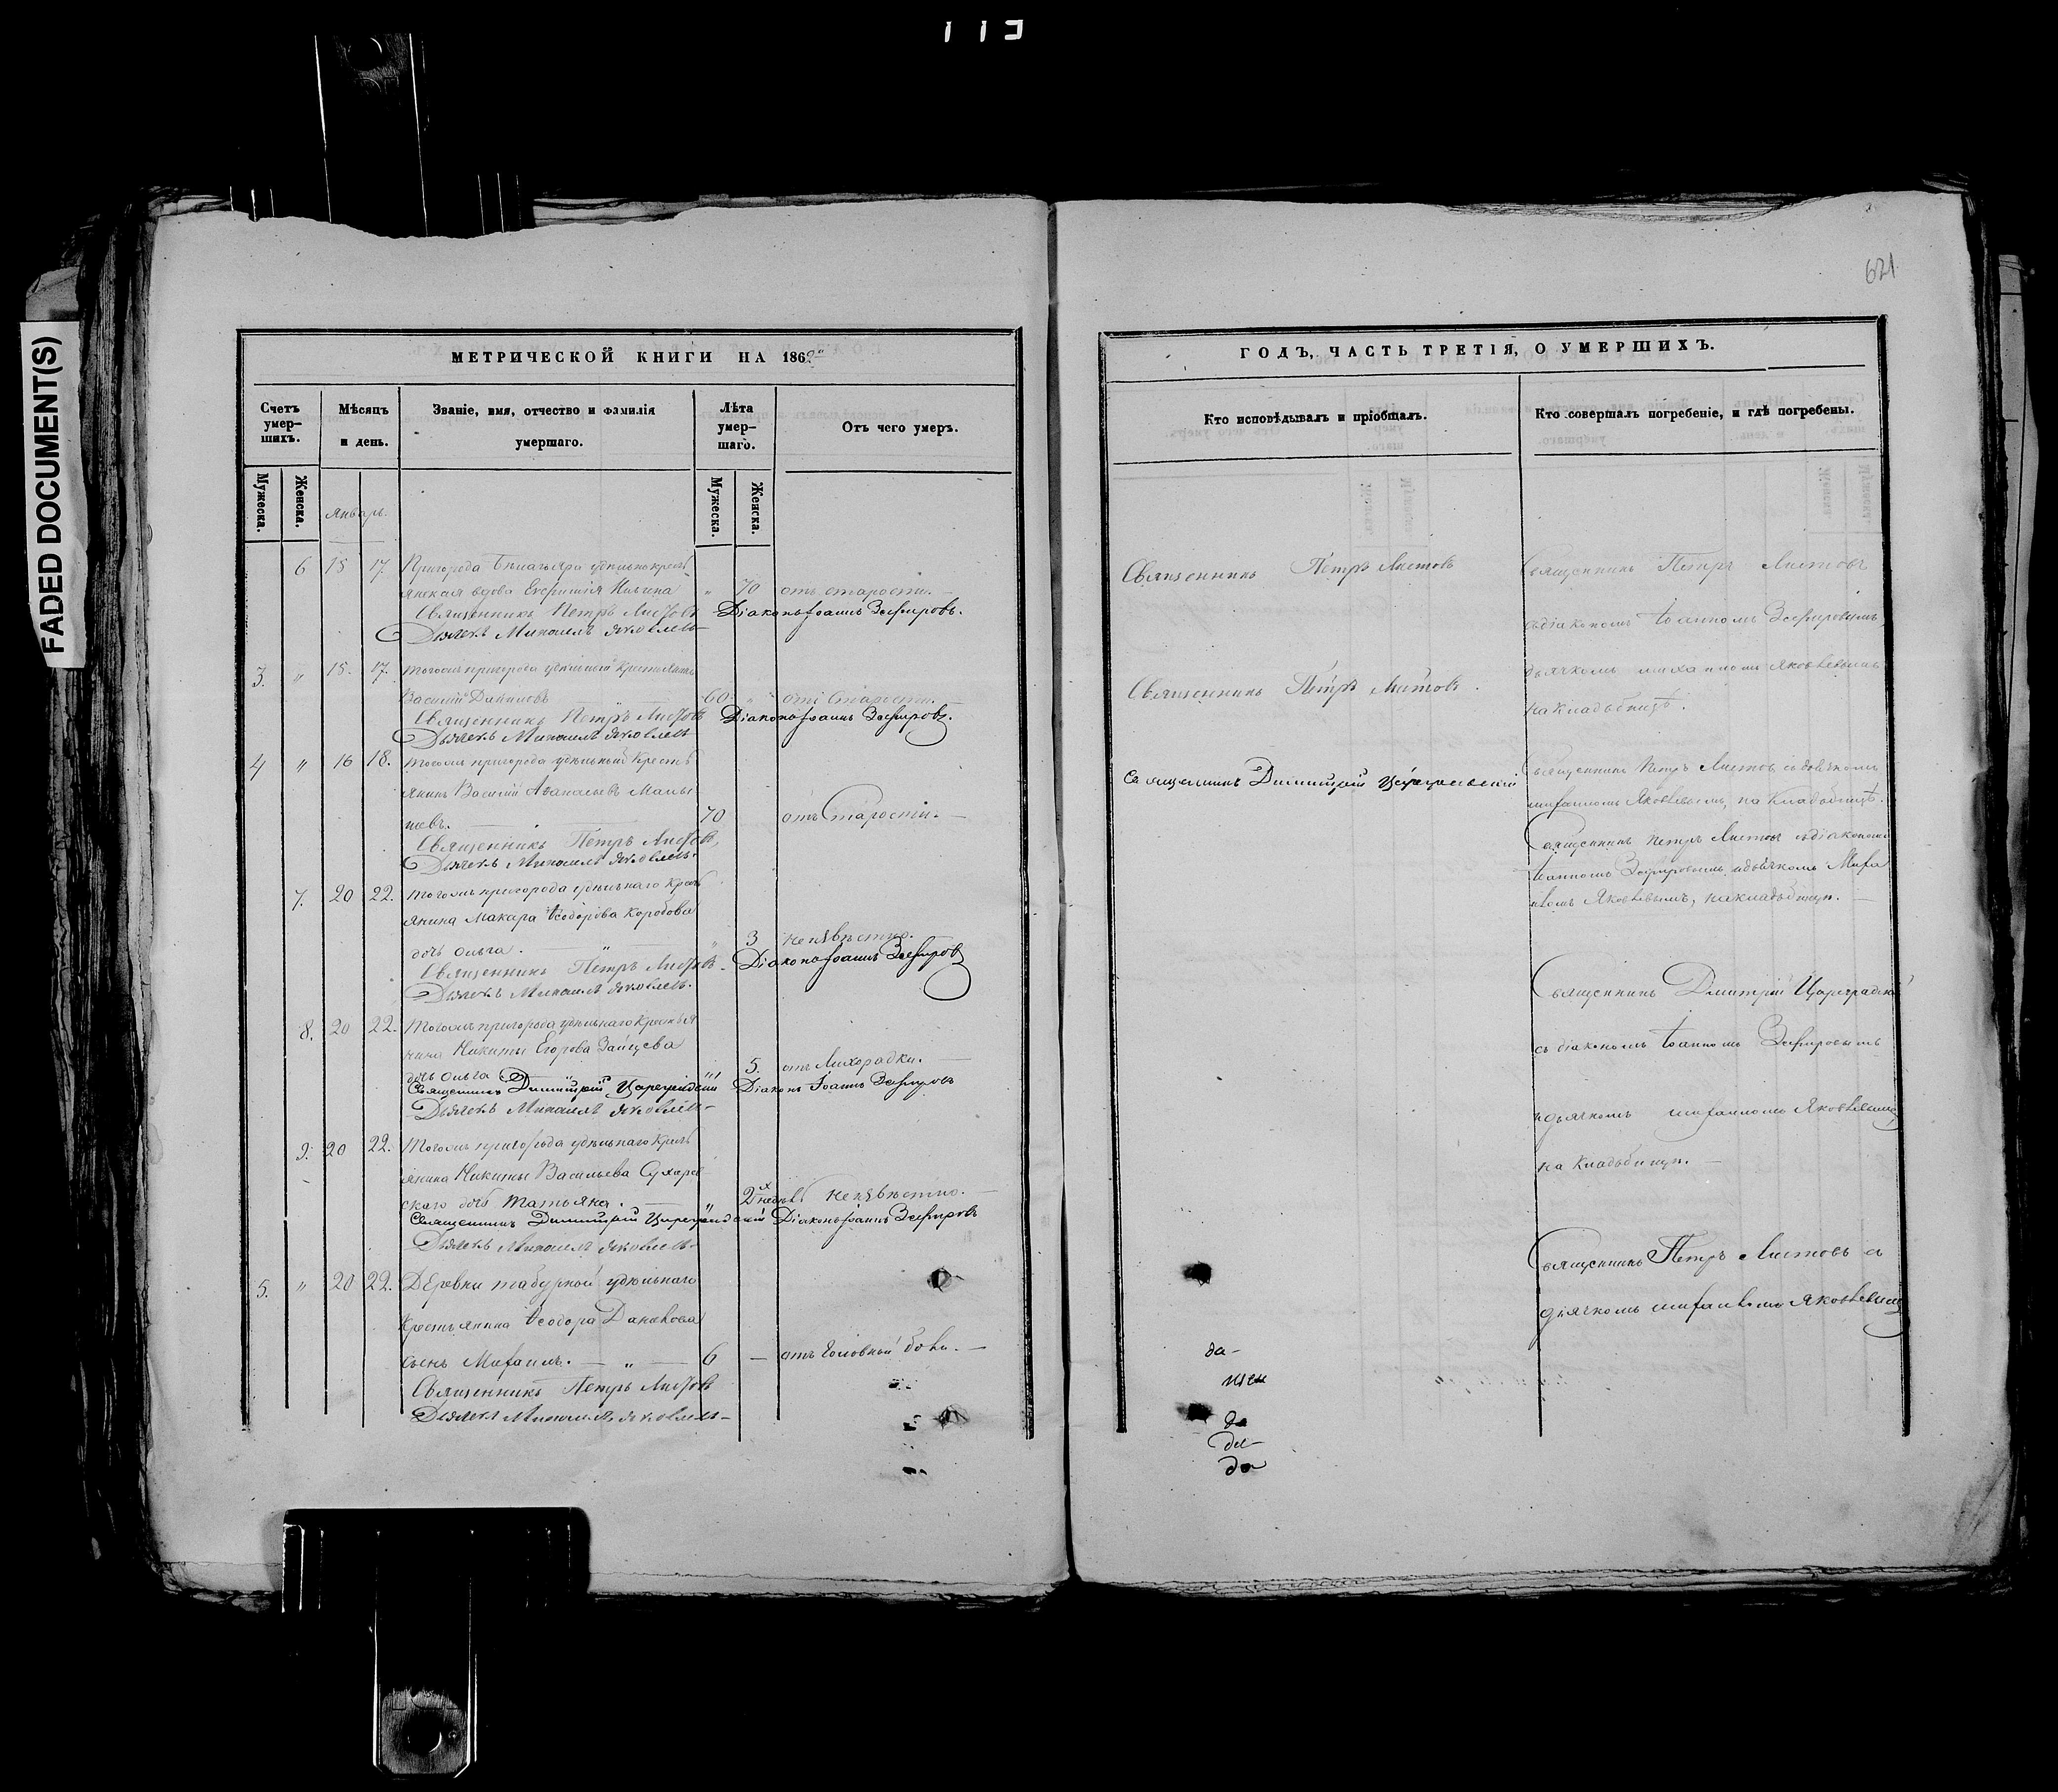 113
FADED DOCUMENT(S)
621
МЕТРИЧЕСКОЙ КНИГИ НА 1862
Счетъ умер-шихъ.
Мѣсяцъ и день.
Званіе, имя, отчество и фамилія умершаго.
Лѣта умер-шаго.
Отъ чего умеръ.
Мужеска.
Женска.
Январь.
Мужеска.
Женска.
6 15 17. Пригорода удѣльнокресть
янская вдова Ильина " 70 отъ старости.
Священникъ Петръ Листовъ Діаконъ Іоаннъ Зефировъ.
Дьячекъ Михаилъ Яковлевъ
3. " 15. 17. Тогожъ пригорода удѣльный крестьянинъ
Василій Даниловъ 60 " отъ старости.
Священникъ Петръ Листовъ Діаконъ Іоаннъ Зефировъ.
Дьячекъ Михаилъ Яковлевъ
4 " 16 18. Тогожъ пригорода удѣльный кресть
янинъ Василій Аѳанасьевъ
70 отъ старости.
Священникъ Петръ Листовъ,
Дьячекъ Михаилъ Яковлевъ.
7. 20 22. Тогожъ пригорода удѣльнаго кресть
янина Макара Ѳеодорова Коробова
дочь Ольга. " 3 неизвѣстно.
Священникъ Петръ Листовъ. Діаконъ Іоаннъ Зефировъ
Дьячекъ Михаилъ Яковлевъ.
8. 20 22. Тогожъ пригорода удѣльнаго крестья
нина Никиты Егорова Зайцева
дочь Ольга " 5. отъ лихорадки.
Священникъ Димитрій Цареградскій Діаконъ Іоаннъ Зефировъ
Дьячекъ Михаилъ Яковлевъ
9. 20 22. Тогожъ пригорода удѣльнаго кресть
янина Никиты Васильева
скаго дочь Татьяна. " 2х недѣль неизвѣстно.
Священникъ Димитрій Цареградскій Діаконъ Іоаннъ Зефировъ
Дьячекъ Михаилъ Яковлевъ
5. " 20 22. Деревни удѣльнаго
крестьянина Ѳеодора
сынъ Михаилъ. " 6 — отъ головной боли.
Священникъ Петръ Листовъ
Дьячекъ Михаилъ Яковлевъ
ГОДЪ, ЧАСТЬ ТРЕТІЯ, О УМЕРШИХЪ.
Кто исповѣдывалъ и пріобщалъ.
Кто совершалъ погребеніе, и гдѣ погребены.
Священникъ Петръ Листовъ
Священникъ Петръ Листовъ
съ діакономъ Іоанномъ Зефировымъ
Священникъ Петръ Листовъ.
дьячкомъ Михаиломъ Яковлевымъ
на кладбищѣ.
Священникъ Димитрій Цареградскій
Священникъ Петръ Листовъ съ дьячкомъ
Михаиломъ Яковлевымъ, на кладбищѣ.
Священникъ Петръ Листовъ съ діакономъ
Іоанномъ Зефировымъ и дьячкомъ Миха
иломъ Яковлевымъ, на кладбищѣ.
Священникъ Дмитрій Цареградскій
съ діакономъ Іоанномъ Зефировымъ
и дьячкомъ Михаиломъ Яковлевымъ
на кладбищѣ.
Священникъ Петръ Листовъ съ
дьячкомъ Михаиломъ Яковлевымъ
да
да
да
да